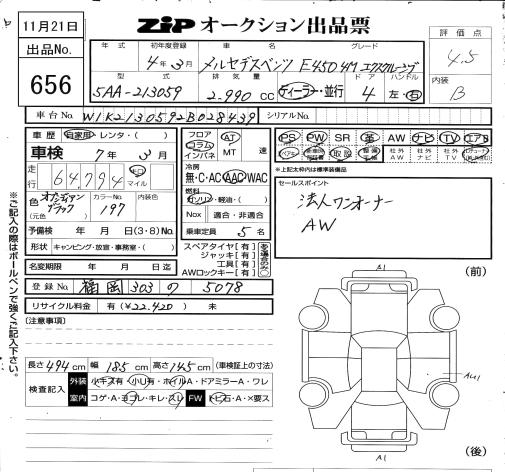 11月21日
ZIP オークション出品票
出品No.
656
年式 初年度登録 車名 グレード
4年3月 メルセデスベンツ E450 4M エクスクルーシブ
型式 排気量 ドア ハンドル
5AA-213059 2.990 cc ディーラー・並行 4 左・右
評価点
4.5
内装
B
車台No. W1K2130592B028439 シリアルNo.
車歴 自家用・レンタ・( )
車検 7年3月
走行 64,794 km マイル
色 オブシディアンブラック
(元色)
カラーNo. 197
内装色
予備検 年 月 日(3・8)No.
形状 キャンピング・放宣・事務室・( )
名変期限 年 月 日迄
フロア コラム インパネ
AT MT 速
冷房
無・C・AC AAC WAC
燃料
ガソリン・軽油・( )
Nox 適合・非適合
乗車定員 5名
スペアタイヤ[有]
ジャッキ[有]
工具[有]
AWロックキー[有]
PS PW SR 革 AW ナビ TV エアB
取説 社外AW 社外ナビ 社外TV
※上記太枠内は標準装備品
セールスポイント
法人ワンオーナー
AW
登録No. 福岡 303 の 5078
リサイクル料金 有(¥22.420)無
(注意事項)
(前)
A1
AW1
A1
(後)
長さ 494 cm 幅 185 cm 高さ 145 cm (車検証上の寸法)
検査記入 外装 小キズ有・小U有・ホイルA・ドアミラーA・ワレ
室内 コゲ・A・ヨゴレ・キレ・スレ FW トビ石・A・×要ス
※ご記入の際はボールペンで強くご記入下さい。